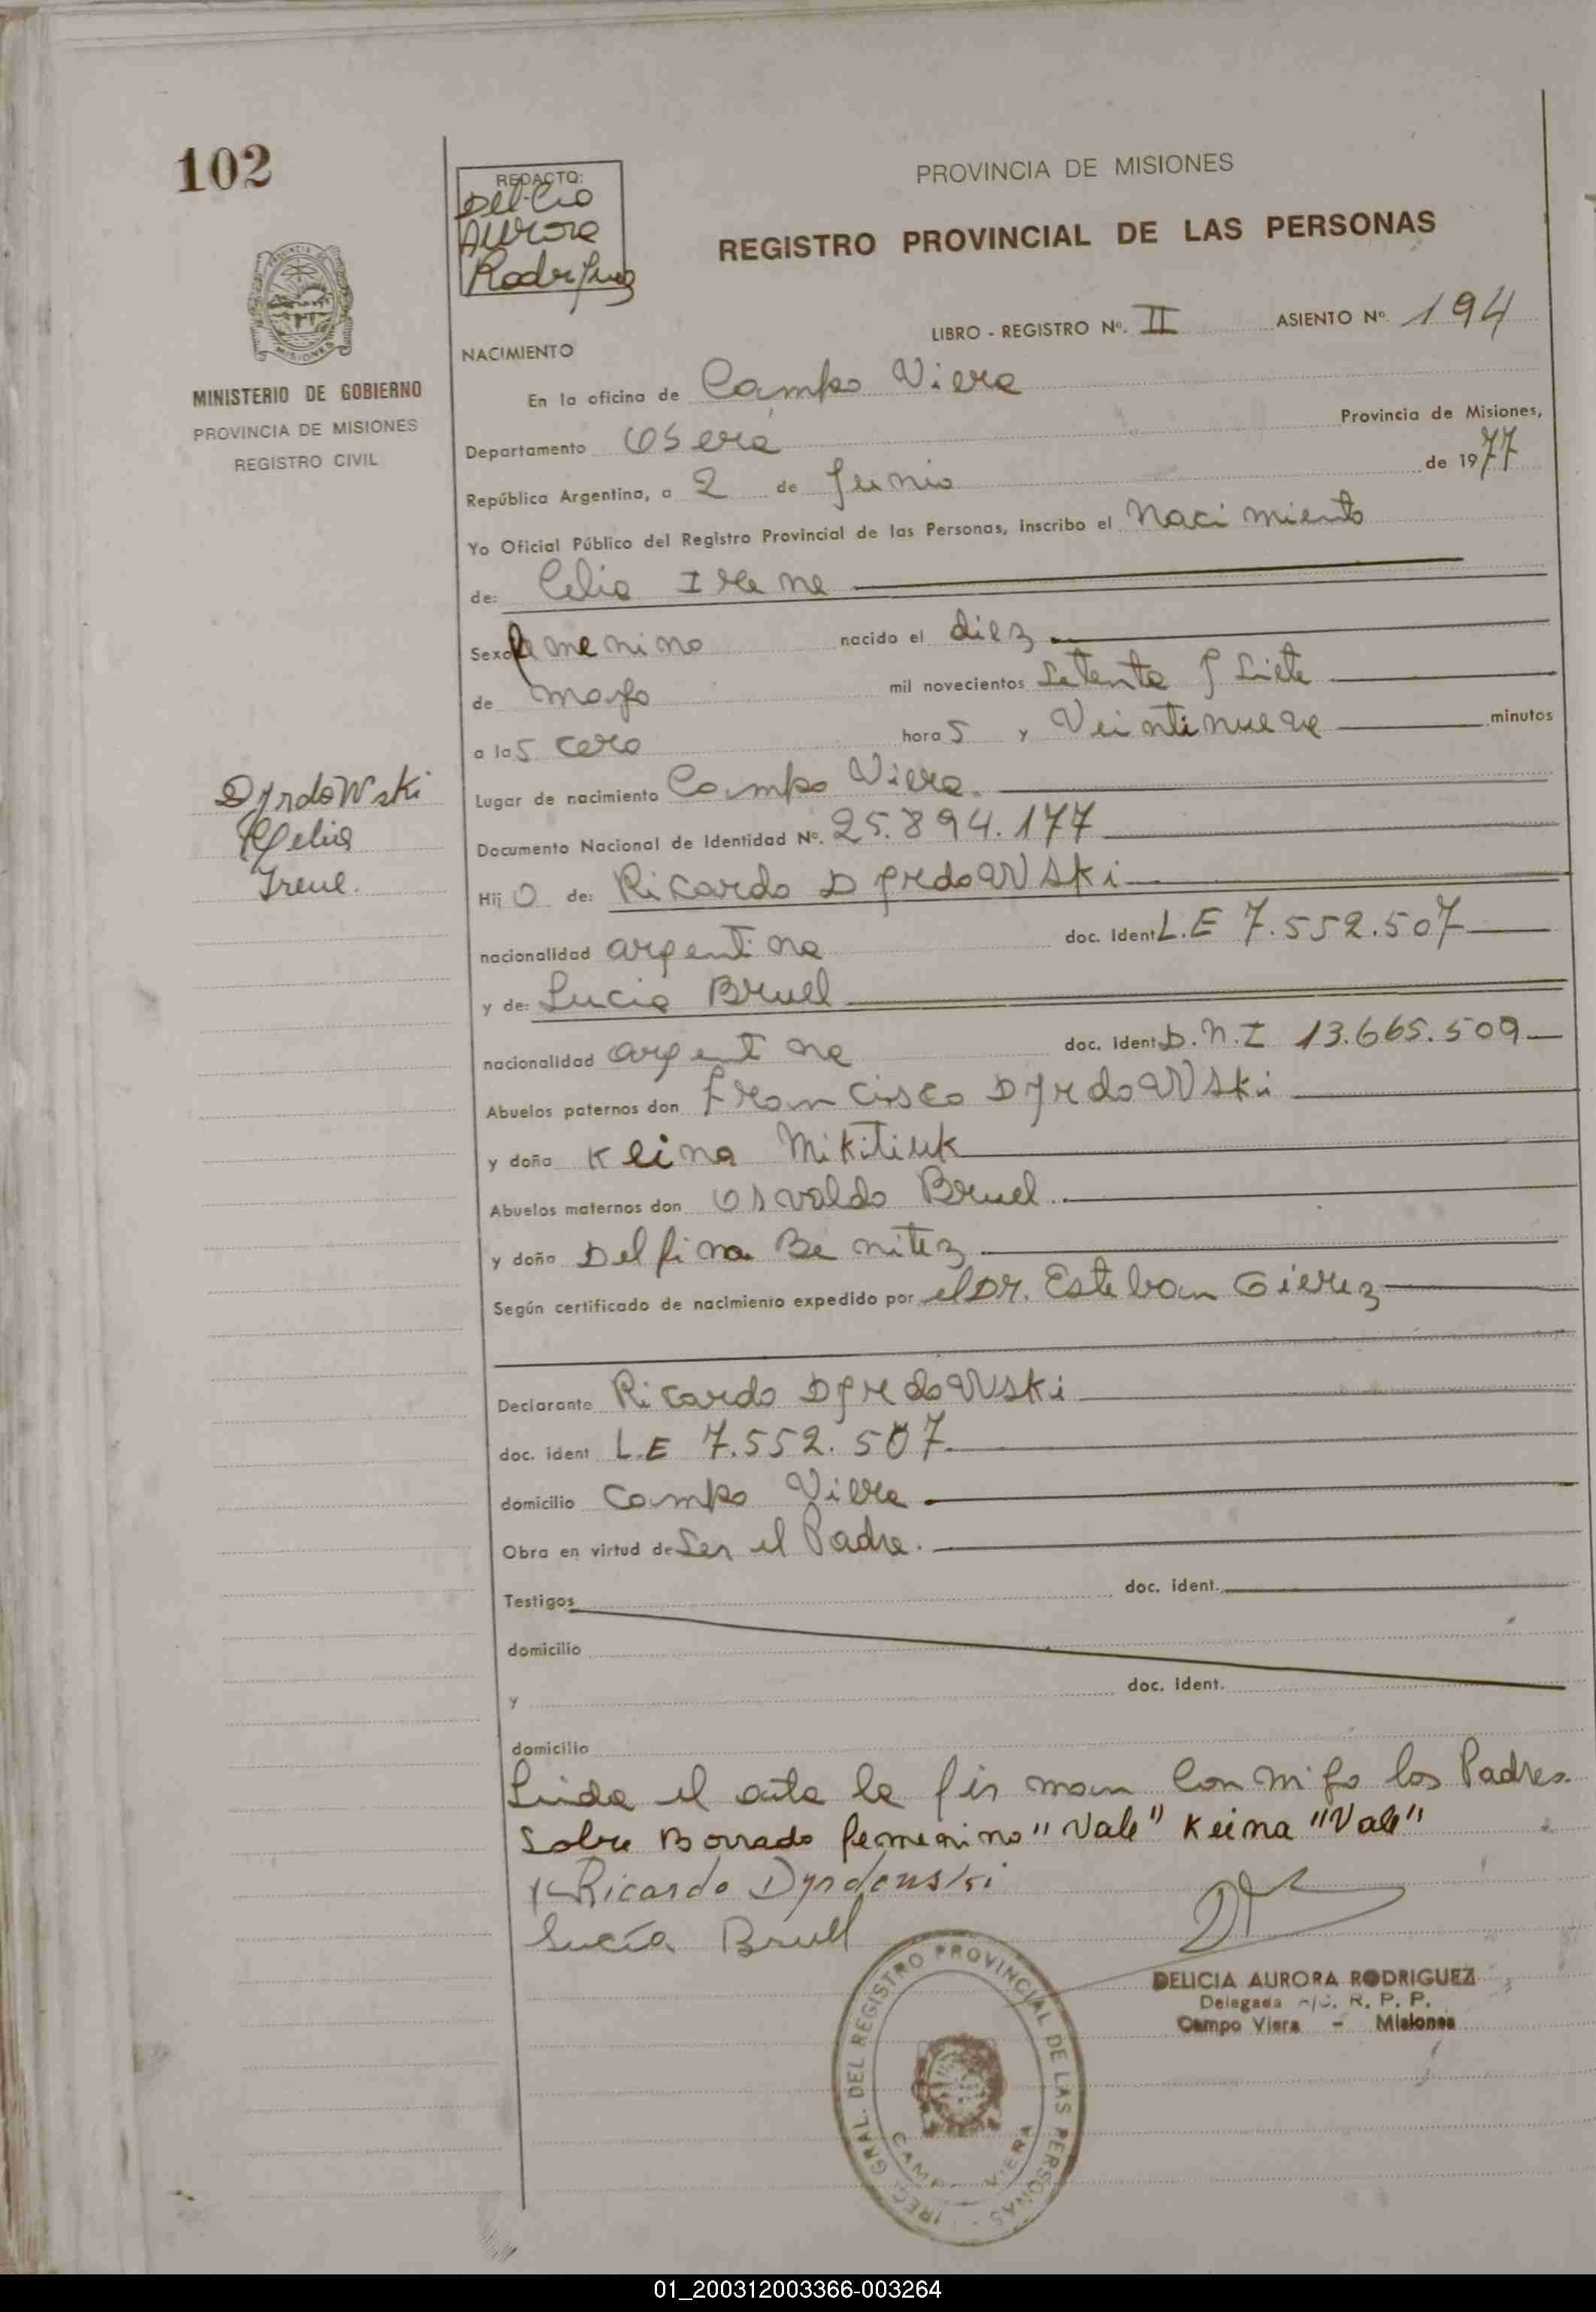 102
REDACTO:
Aurora
Rodriguez
PROVINCIA DE MISIONES
REGISTRO PROVINCIAL DE LAS PERSONAS
MINISTERIO DE GOBIERNO
PROVINCIA DE MISIONES
REGISTRO CIVIL
LIBRO - REGISTRO Nº. II ASIENTO Nº. 194
NACIMIENTO
En la oficina de Campo Viera
Departamento Oberá Provincia de Misiones,
República Argentina, a 2 de Junio de 1977
Yo Oficial Público del Registro Provincial de las Personas, inscribo el Nacimiento
de: Celia Irene
Sexo femenino nacido el diez
de mayo mil novecientos Setenta y Siete
a las cero horas y Veintinueve minutos
Lugar de nacimiento Campo Viera.
Documento Nacional de Identidad Nº. 25.894.177
Dyrdowski
Celia
Irene.
Hijo de: Ricardo Dyrdowski
nacionalidad argentina doc. ident L.E 7.552.507
y de: Lucia Bruell
nacionalidad argentina doc. ident D.N.I 13.665.509
Abuelos paternos don Francisco Dyrdowski
y doña Keina Mikitiuk
Abuelos maternos don Osvaldo Bruel
y doña Delfina Benitez
Según certificado de nacimiento expedido por el Dr. Esteban Gierez
Declarante Ricardo Dyrdowski
doc. ident L.E 7.552.507
domicilio Campo Viera
Obra en virtud de Ser el Padre.
Testigos doc. ident.
domicilio
y doc. ident.
domicilio
Leida el acta la firman conmigo los Padres.
Sobre Borrado femenino "Vale" Keina "Vale"
Ricardo Dyrdowski
Lucía Bruell
DELICIA AURORA RODRIGUEZ
Delegada A/C. R. P. P.
Campo Viera - Misiones
GRAL. DEL REGISTRO PROVINCIAL DE LAS PERSONAS
CAMPO VIERA
MISIONES
01_200312003366-003264